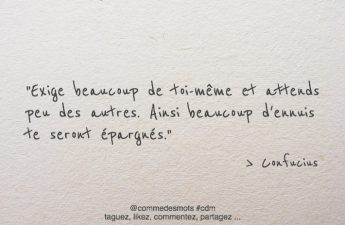 "Exige beaucoup de toi-même et attends
peu des autres. Ainsi beaucoup d'ennuis
te seront épargnés."
> Confucius
@commedesmots #cdm
taguez, likez, commentez, partagez ...